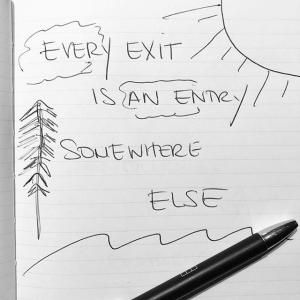 EVERY EXIT
IS AN ENTRY
SOMEWHERE
ELSE